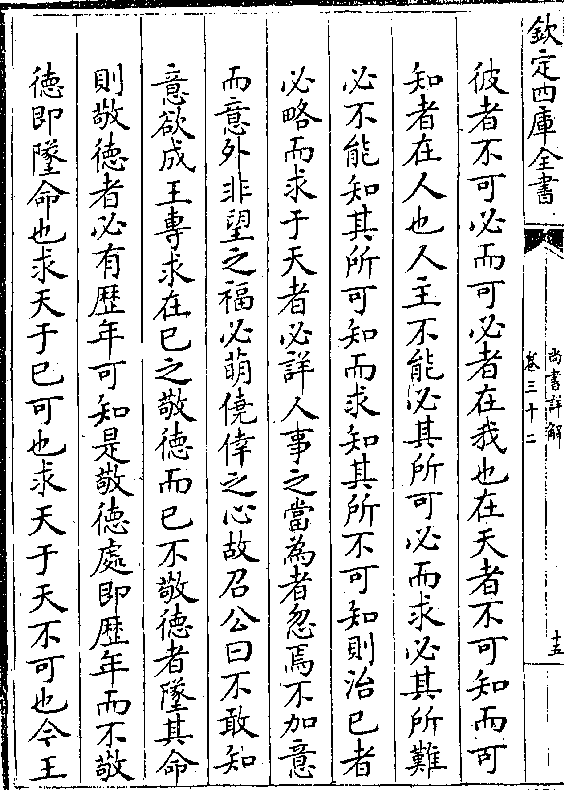 欽定四庫全書
尚書詳解
卷三十二
十五
彼者不可必而可必者在我也在天者不可知而可
知者在人也人主不能必其所可必而求必其所難
必不能知其所可知而求知其所不可知則治已者
必略而求于天者必詳人事之當為者忽焉不加意
而意外非望之福必萌僥倖之心故召公曰不敢知
意欲成王專求在已之敬徳而已不敬徳者墜其命
則敬徳者必有歴年可知是敬徳處即歴年而不敬
徳即墜命也求天于已可也求天于天不可也今王